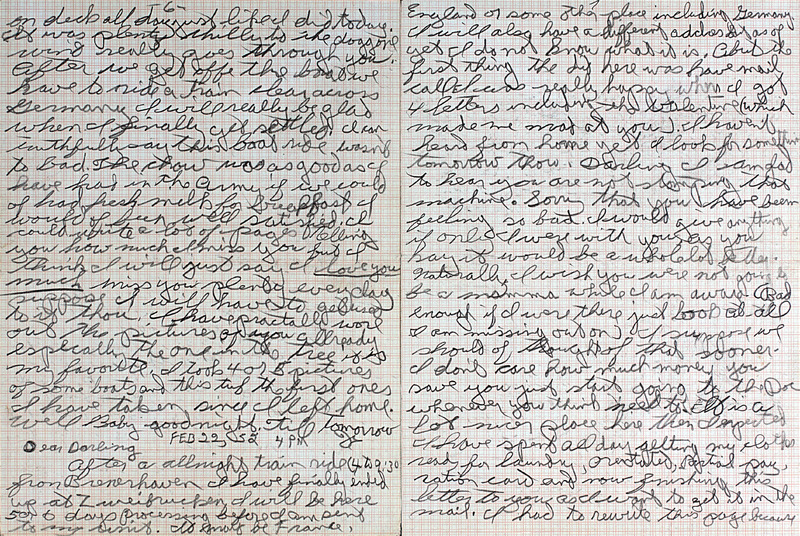 -6-
on deck all day just like I did today.
It was plenty chilly to the dogs one
wind really goes through you.
After we get off the boat we
have to ride a train clear across
Germany. I will really be glad
when I finally get settled. I can
truthfully say this boat ride wasn't
to bad. The chow was as good as I
have had in the Army if we could
of had fresh milk for breakfast I
would of been well satisfied. I
could write a lot of pages telling
you how much I miss you but I
think I will just say I love you
much miss you plenty everyday
suppose I will have to get used
to it thou. I have practally wore
out the pictures of you allready
especially the one in the tree it is
my favorite. I took 4 or 5 pictures
of some boats and this the first ones
I have taken since I left home.
Well Baby goodnight till tomorrow
FEB 22, 52 4 PM
Dear Darling
After a allnight train ride (4 to 9:30
from Bremerhaven I have finally ended
up at Zweibrucken. I will be here
5 or 6 days processing before I am sent
to my unit. It may be France,
England or some other place including Germany
I will also have a different address as of
yet I do not know what it is. About the
first thing they did here was have mail
call I was really happy when I got
4 letters including the Valentine (which
made me mad at you). I haven't
heard from home yet I look for something
tomorrow thow. Darling I am glad
to hear you are not stamping that
machine. Sorry that you have been
feeling so bad. I would give anything
if only I were with you as you
say it would be a whole lot better.
Naturally I wish you were not going to
be a momma while I am away (Bad
enough if I were there just look at all
I am missing out on) I suppose we
should of thought of that sooner.
I dont care how much money you
save you just start going to the Doc
whenever you think need to. It is a
lot nicer place here then I expected
I have spent all day getting my cloths
ready for laundry, orentated, partial pay,
ration card and now finishing this
letter to you as I want to get it in the
mail. I had to rewrite this page because